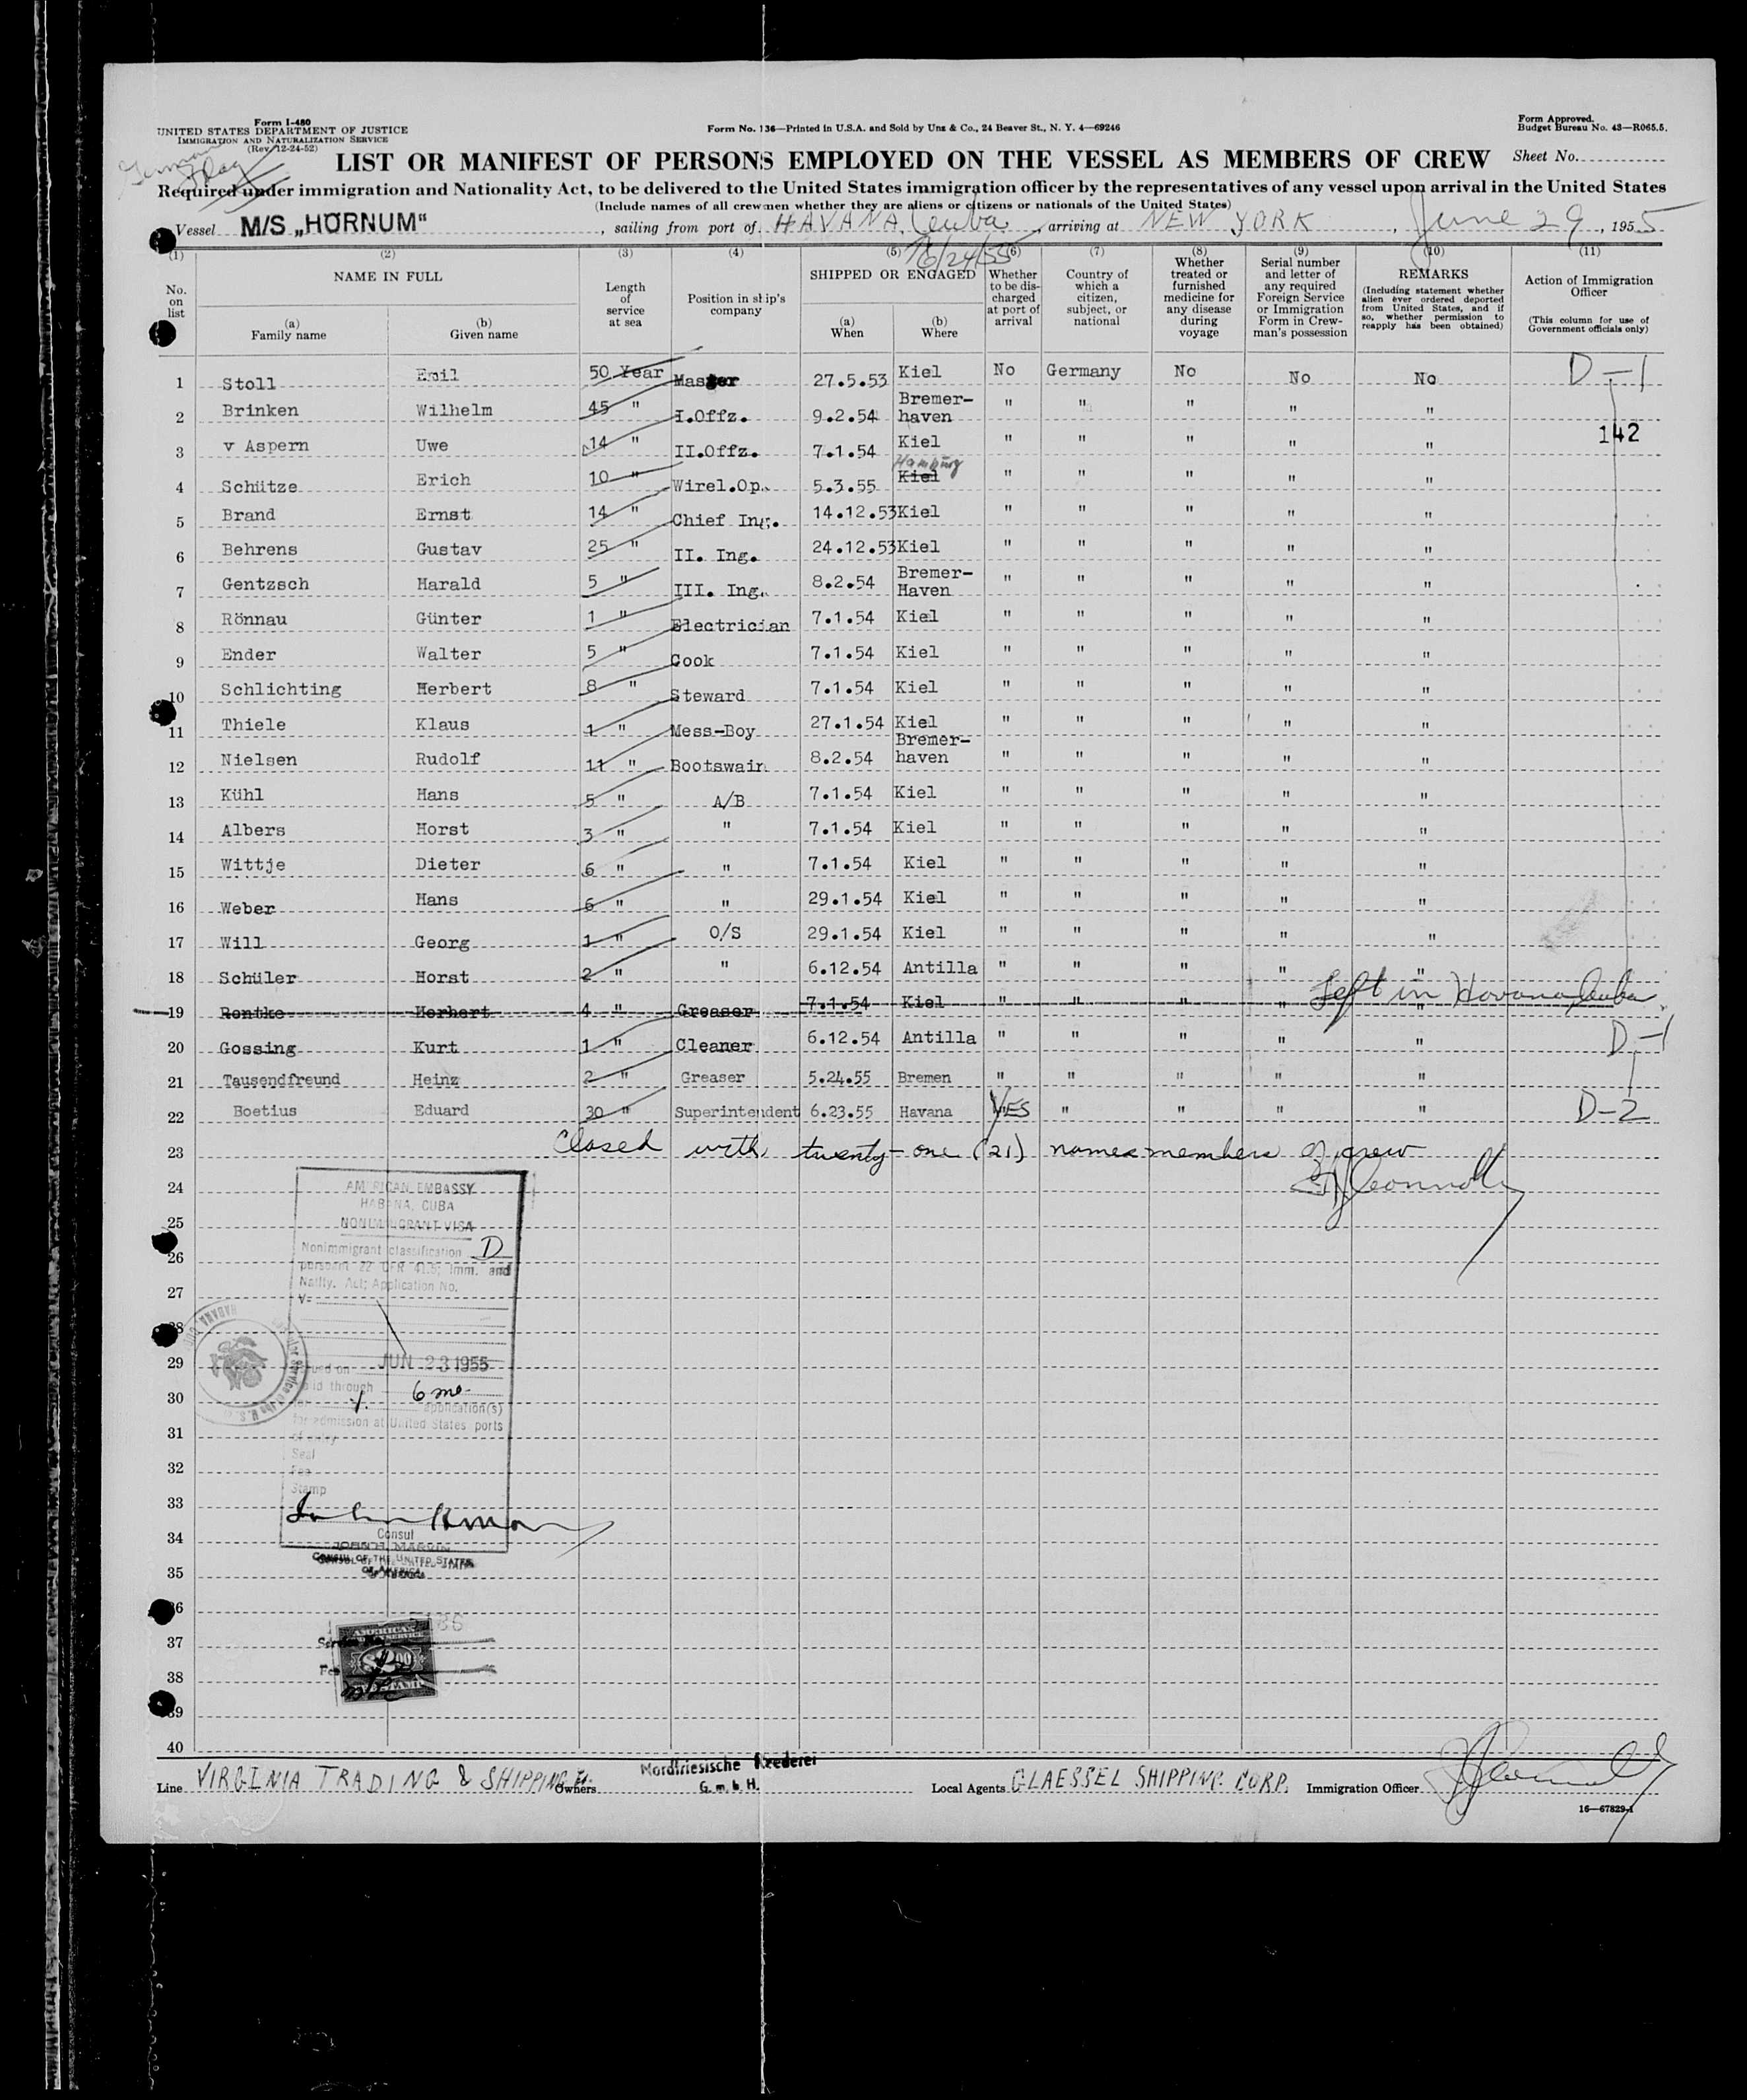 Form I-480
UNITED STATES DEPARTMENT OF JUSTICE
IMMIGRATION AND NATURALIZATION SERVICE
(Rev. 12-24-52)
German Flag
Form No. 136—Printed in U.S.A. and Sold by Unz & Co., 24 Beaver St., N. Y. 4—69246
Form Approved.
Budget Bureau No. 43—R065.5.
LIST OR MANIFEST OF PERSONS EMPLOYED ON THE VESSEL AS MEMBERS OF CREW
Sheet No.
Required under immigration and Nationality Act, to be delivered to the United States immigration officer by the representatives of any vessel upon arrival in the United States
(Include names of all crewmen whether they are aliens or citizens or nationals of the United States)
Vessel M/S „HÖRNUM“, sailing from port of HAVANA, Cuba, arriving at NEW YORK, June 29, 1955
6/24/55
(1) (2) (3) (4) (5) (6) (7) (8) (9) (10) (11)
No. on list
NAME IN FULL
(a) Family name
(b) Given name
Length of service at sea
Position in ship's company
SHIPPED OR ENGAGED
(a) When
(b) Where
Whether to be discharged at port of arrival
Country of which a citizen, subject, or national
Whether treated or furnished medicine for any disease during voyage
Serial number and letter of any required Foreign Service or Immigration Form in Crewman's possession
REMARKS
(Including statement whether alien ever ordered deported from United States, and if so, whether permission to reapply has been obtained)
Action of Immigration Officer
(This column for use of Government officials only)
1 Stoll Emil 50 Year Master 27.5.53 Kiel No Germany No No No D-1
2 Brinken Wilhelm 45 " I.Offz. 9.2.54 Bremer-haven " " " " "
142
3 v Aspern Uwe 14 " II.Offz. 7.1.54 Kiel " " " " "
4 Schütze Erich 10 " Wirel.Op. 5.3.55 Hamburg Kiel " " " " "
5 Brand Ernst 14 " Chief Ing. 14.12.53 Kiel " " " " "
6 Behrens Gustav 25 " II. Ing. 24.12.53 Kiel " " " " "
7 Gentzsch Harald 5 " III. Ing. 8.2.54 Bremer-Haven " " " " "
8 Rönnau Günter 1 " Electrician 7.1.54 Kiel " " " " "
9 Ender Walter 5 " Cook 7.1.54 Kiel " " " " "
10 Schlichting Herbert 8 " Steward 7.1.54 Kiel " " " " "
11 Thiele Klaus 1 " Mess-Boy 27.1.54 Kiel " " " " "
12 Nielsen Rudolf 11 " Bootswain 8.2.54 Bremer-haven " " " " "
13 Kühl Hans 5 " A/B 7.1.54 Kiel " " " " "
14 Albers Horst 3 " " 7.1.54 Kiel " " " " "
15 Wittje Dieter 6 " " 7.1.54 Kiel " " " " "
16 Weber Hans 6 " " 29.1.54 Kiel " " " " "
17 Will Georg 1 " O/S 29.1.54 Kiel " " " " "
18 Schüler Horst 2 " " 6.12.54 Antilla " " " " "
19 Rentke Herbert 4 " Greaser 7.1.54 Kiel " " " " " Left in Havana, Cuba
20 Gossing Kurt 1 " Cleaner 6.12.54 Antilla " " " " " D-1
21 Tausendfreund Heinz 2 " Greaser 5.24.55 Bremen " " " " "
22 Boetius Eduard 30 " Superintendent 6.23.55 Havana YES " " " " D-2
23 Closed with twenty-one (21) names members of crew
24
25
26
27
28
29
30
31
32
33
34
35
36
37
38
39
40
AMERICAN EMBASSY
HABANA, CUBA
NONIMMIGRANT VISA
Nonimmigrant classification D
pursuant 22 CFR 41.5; Imm. and
Natlty. Act; Application No.
V-
Issued on JUN 23 1955
Valid through 6 mo.
for application(s)
for admission at United States ports
of entry
Seal
Fee
Stamp
Consul
JOHN H. MARVIN
CONSUL OF THE UNITED STATES
OF AMERICA
AMERICAN
SERVICE
$2.00
STAMP
Line VIRGINIA TRADING & SHIPPING Owners Nordfriesische Reederei G.m.b.H. Local Agents GLAESSEL SHIPPING CORP. Immigration Officer
16—67829-1